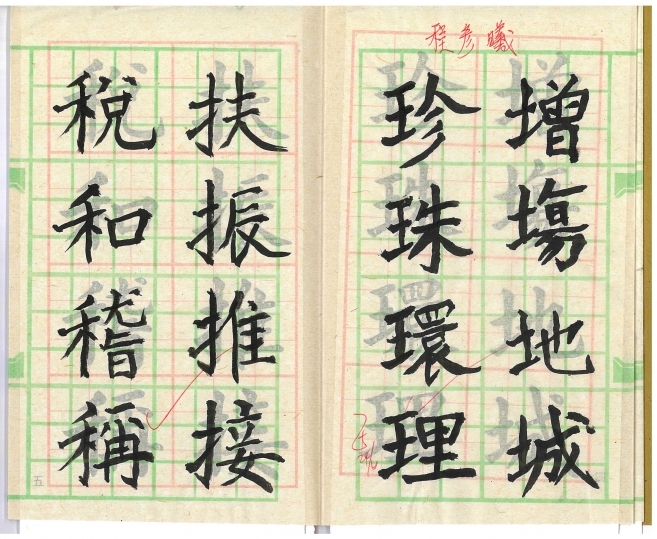 程彥曦
增塲地城
珍珠環理
扶振推接
稅和稽稱
五